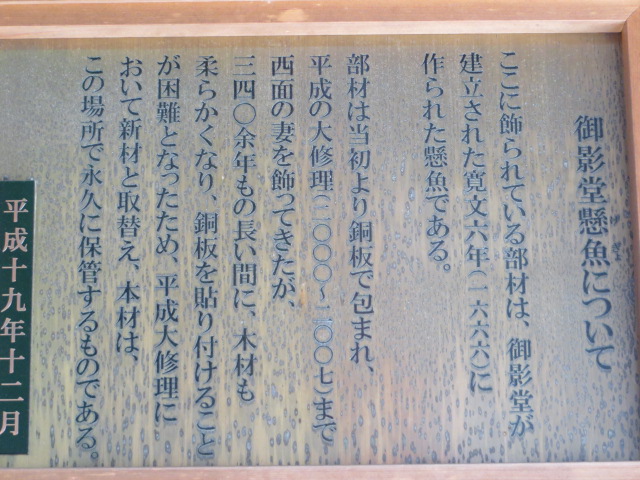 御影堂懸魚について
ここに飾られている部材は、御影堂が
建立された寛文六年(一六六六)に
作られた懸魚である。
部材は当初より銅板で包まれ、
平成の大修理(二〇〇〇~二〇〇七)まで
西面の妻を飾ってきたが、
三四〇余年もの長い間に、木材も
柔らかくなり、銅板を貼り付けること
が困難となったため、平成大修理に
おいて新材と取替え、本材は、
この場所で永久に保管するものである。
平成十九年十二月